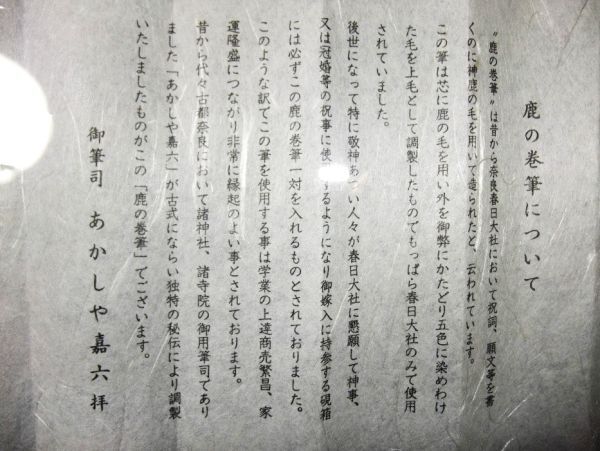 鹿の巻筆について
〝鹿の巻筆〟は昔から奈良春日大社において祝詞、願文等を書
くのに神鹿の毛を用いて造られたと、云われています。
この筆は芯に鹿の毛を用い外を御弊にかたどり五色に染めわけ
た毛を上毛として調製したものでもっぱら春日大社のみで使用
されていました。
後世になって特に敬神あつい人々が春日大社に懇願して神事、
又は冠婚等の祝事に使用するようになり御嫁入に持参する硯箱
には必ずこの鹿の巻筆一対を入れるものとされておりました。
このような訳でこの筆を使用する事は学業の上達商売繁昌、家
運隆盛につながり非常に縁起のよい事とされております。
昔から代々古都奈良において諸神社、諸寺院の御用筆司であり
ました「あかしや嘉六」が古式にならい独特の秘伝により調製
いたしましたものがこの「鹿の巻筆」でございます。
御筆司 あかしや嘉六拝